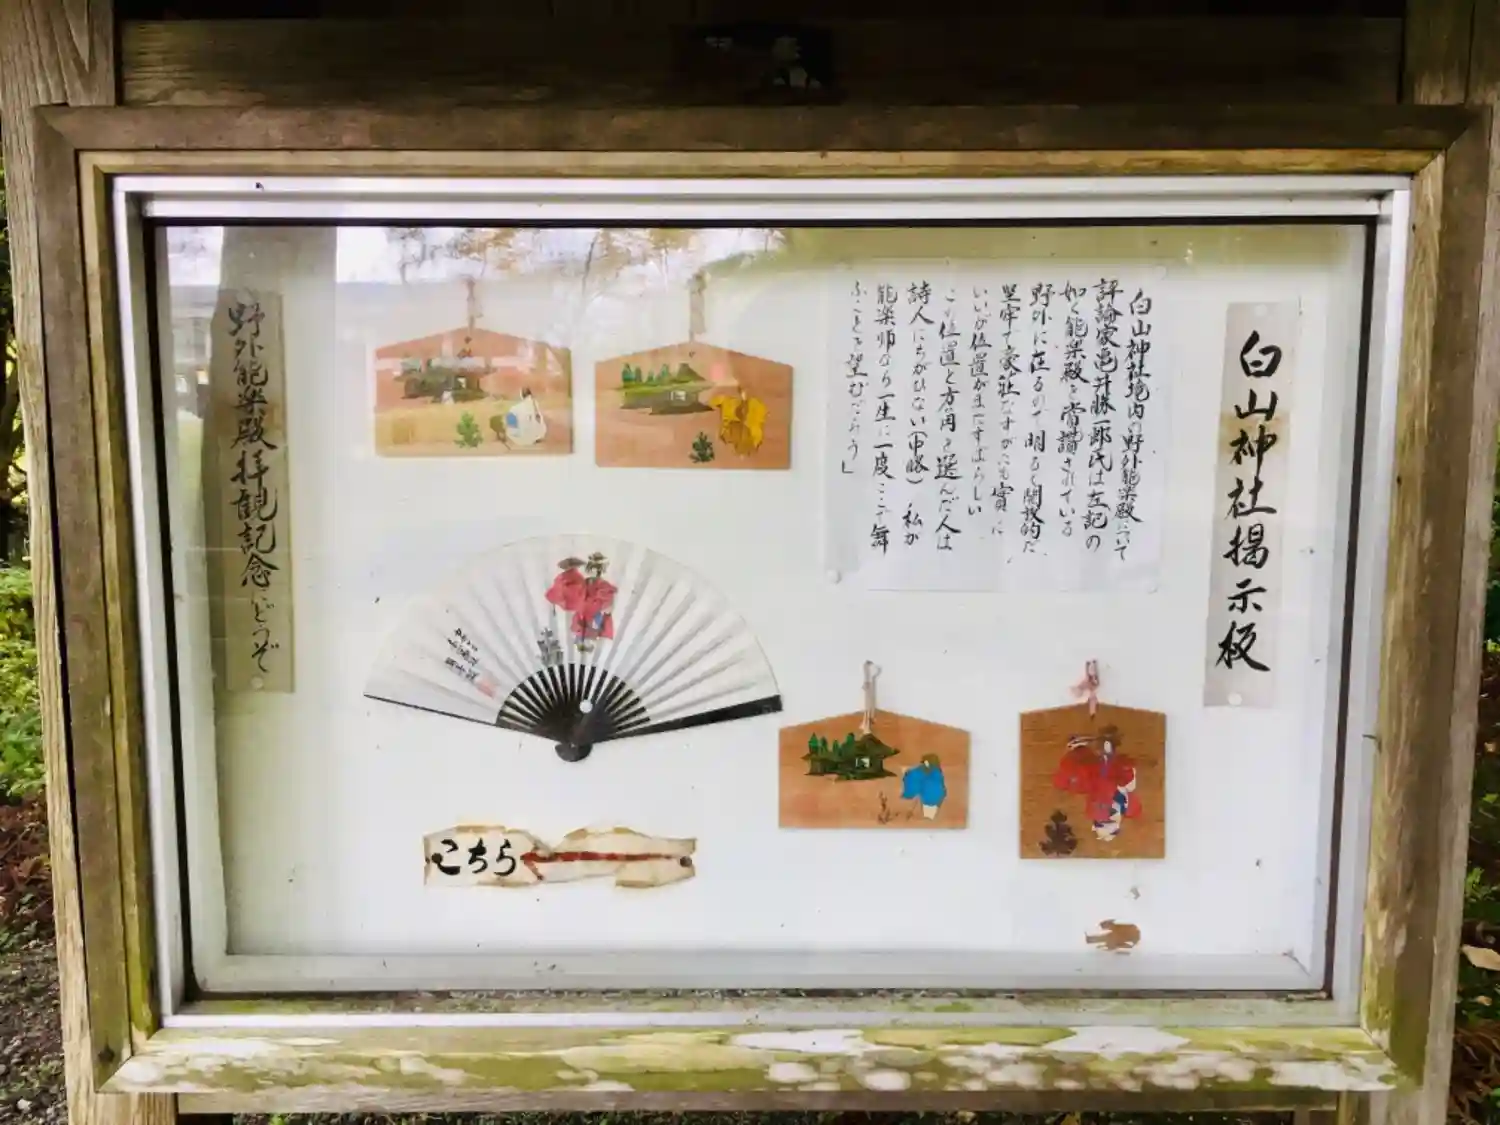 白山神社掲示板
白山神社境内の野外能楽殿について
評論家亀井勝一郎氏は左記の
如く能楽殿を賞讃されている
野外に在るので明るく開放的だ
堅牢で豪壮なすがたも實に
いいが位置がまたすばらしい
この位置と方角を選んだ人は
詩人にちがひない(中略)私が
能楽師なら一生に一度ここで舞
ふことを望むだらう」
野外能楽殿拝観記念にどうぞ
こちら